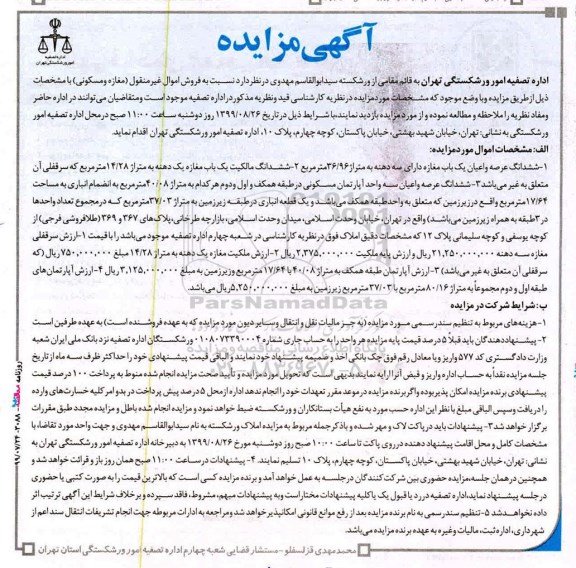 آگهی مزایده
اداره تصفیه
امور ورشکستگی تهران
اداره تصفیه امور ورشکستگی تهران به قائم مقامی از ورشکسته سیدابوالقاسم مهدوی در نظر دارد نسبت به فروش اموال غیرمنقول (مغازه ومسکونی) با مشخصات
ذیل از طریق مزایده وبا وضع موجود که مشخصات مورد مزایده در نظریه کارشناسی قید ونظریه مذکور در اداره تصفیه موجود است ومتقاضیان می توانند در اداره حاضر
ومفاد نظریه را ملاحظه و مطالعه نموده و از مورد مزایده بازدید نمایند،با شرایط ذیل در تاریخ ۱۳۹۹/۰۸/۲۶ روز دوشنبه ساعت ۱۱:۰۰ صبح در محل اداره تصفیه امور
ورشکستگی به نشانی: تهران، خیابان شهید بهشتی، خیابان پاکستان، کوچه چهارم، پلاک ۱۰، اداره تصفیه امور ورشکستگی تهران اقدام نماید.
الف: مشخصات اموال مورد مزایده:
۱-ششدانگ عرصه واعیان یک باب مغازه دارای سه دهنه به متراژ ۳۶/۹۶ مترمربع ۲-ششدانگ مالکیت یک باب مغازه یک دهنه به متراژ ۱۴/۲۸ مترمربع که سرقفلی آن
متعلق به غیر می باشد ۳-ششدانگ عرصه واعیان سه واحد آپارتمان مسکونی در طبقه همکف و اول ودوم هر کدام به متراژ ۴۰/۰۸ مترمربع به انضمام انباری به مساحت
۱۷/۶۴ مترمربع واقع در زیرزمین که متعلق به واحد طبقه همکف می باشد. و یک قطعه انباری در طبقه زیرزمین به متراژ ۳۷/۰۳ مترمربع که در مجموع تعداد واحدها
در ۳ طبقه به همراه زیرزمین می باشد) واقع در تهران، خیابان وحدت اسلامی، میدان وحدت اسلامی، بازارچه طرخانی، پلاک های ۳۶۷ و ۳۶۹ (طلافروشی فرجی) از
کوچه یوسفی و کوچه سلیمانی پلاک ۱۲ که مشخصات دقیق املاک فوق در نظریه کارشناسی در شعبه چهارم اداره تصفیه موجود می باشد را با قیمت ۱-ارزش سرقفلی
مغازه سه دهنه ۲۱,۲۵۰,۰۰۰,۰۰۰ ریال و ارزش پایه ملکیت ۲,۳۷۵,۰۰۰,۰۰۰ ریال ۲-ارزش ملکیت مغازه یک دهنه به متراژ ۱۴/۲۸ مبلغ ۷۵۰,۰۰۰,۰۰۰ ریال (که
سرقفلی آن متعلق به غیر می باشد) ۳-ارزش آپارتمان طبقه همکف به متراژ ۴۰/۰۸ با ۱۷/۶۴ مترمربع وزیرزمین به مبلغ ۳,۱۲۵,۰۰۰,۰۰۰ ریال ۴-ارزش آپارتمان های
طبقه اول و دوم مجموعاً به متراژ ۸۰/۱۶ مترمربع با ۳۷/۰۳ مترمربع زیرزمین به مبلغ ۵,۲۵۰,۰۰۰,۰۰۰ ریال می باشد.
ب: شرایط شرکت در مزایده
۱-هزینه های مربوط به تنظیم سند رسمی مورد مزایده (به جز مالیات نقل و انتقال وسایر دیون مورد مزایده که به عهده فروشنده است) به عهده طرفین است
۲-پیشنهاددهندگان باید قبلاً ۵ درصد قیمت پایه مزایده هر واحد را به حساب جاری شماره ۰۱۰۸۰۷۳۳۹۰۰۰۴ ورشکستگان اداره تصفیه نزد بانک ملی ایران شعبه
وزارت دادگستری کد ۵۷۷ واریز ویا معادل رقم فوق چک بانکی اخذ و ضمیمه پیشنهاد خود نمایند و الباقی قیمت پیشنهادی خود را حداکثر ظرف سه ماه از تاریخ
جلسه مزایده نقداً به حساب اداره واریز و فیش آن را ارایه نمایند بدیهی است که تحویل مورد مزایده و تأیید صحت مزایده انجام شده منوط به پرداخت ۱۰۰ درصد قیمت
پیشنهادی برنده مزایده امکان پذیر بوده واگر برنده مزایده در موعد مقرر تعهدات خود را انجام ندهد اداره از محل ۵ درصد پیش پرداخت در بدو امر کلیه خسارت های وارده
را دریافت وسپس الباقی مبلغ با نظر این اداره حسب مورد به نفع هیأت بستانکاران و ورشکسته ضبط خواهد نمود و مزایده انجام شده باطل و مزایده مجدد طبق مقررات
برگزار خواهد شد ۳-پیشنهادات باید در پاکت لاک و مهر شده و با ذکر جمله مربوط به مزایده املاک ورشکسته به نام سیدابوالقاسم مهدوی و جهت واحد مورد تقاضا، با
مشخصات کامل و محل اقامت پیشنهاد دهنده در روی پاکت تا ساعت ۱۰:۰۰ صبح روز دوشنبه مورخ ۱۳۹۹/۰۸/۲۶ به دبیرخانه اداره تصفیه امور ورشکستگی تهران به
نشانی: تهران، خیابان شهید بهشتی، خیابان پاکستان، کوچه چهارم، پلاک ۱۰ تسلیم نمایند. ۴-پیشنهادات در ساعت ۱۱:۰۰ صبح همان روز باز و قرائت خواهد شد و
همچنین در همان جلسه،مزایده حضوری بین شرکت کنندگان در جلسه به عمل خواهد آمد و برنده مزایده کسی است که بالاترین قیمت را به صورت کتبی یا حضوری
در جلسه پیشنهاد نماید،اداره تصفیه در رد یا قبول یک یا کلیه پیشنهادات مختار است وبه پیشنهادات مبهم، مشروط، فاقد سپرده و برخلاف شرایط این آگهی ترتیب اثر
داده نخواهد شد ۵-تنظیم سند رسمی به نام برنده مزایده بعد از رفع موانع قانونی امکانپذیر خواهد شد ومراجعه به ادارات مربوطه جهت انجام تشریفات انتقال سند اعم از
شهرداری، اداره ثبت، مالیات وغیره به عهده برنده مزایده می باشد.
محمدمهدی قزلسفلو - مستشار قضایی شعبه چهارم اداره تصفیه امور ورشکستگی استان تهران
ParsNamadData